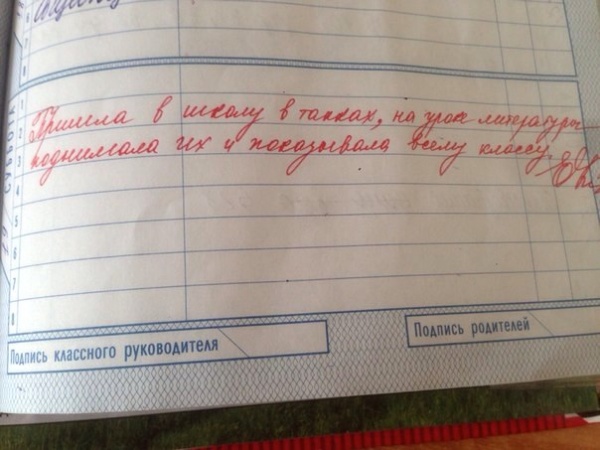 СУББОТА
1
2
3
4
5
6
7
8
Пришла в школу в тапках, на уроке литературы
поднимала их и показывала всему классу.
Подпись классного руководителя
Подпись родителей